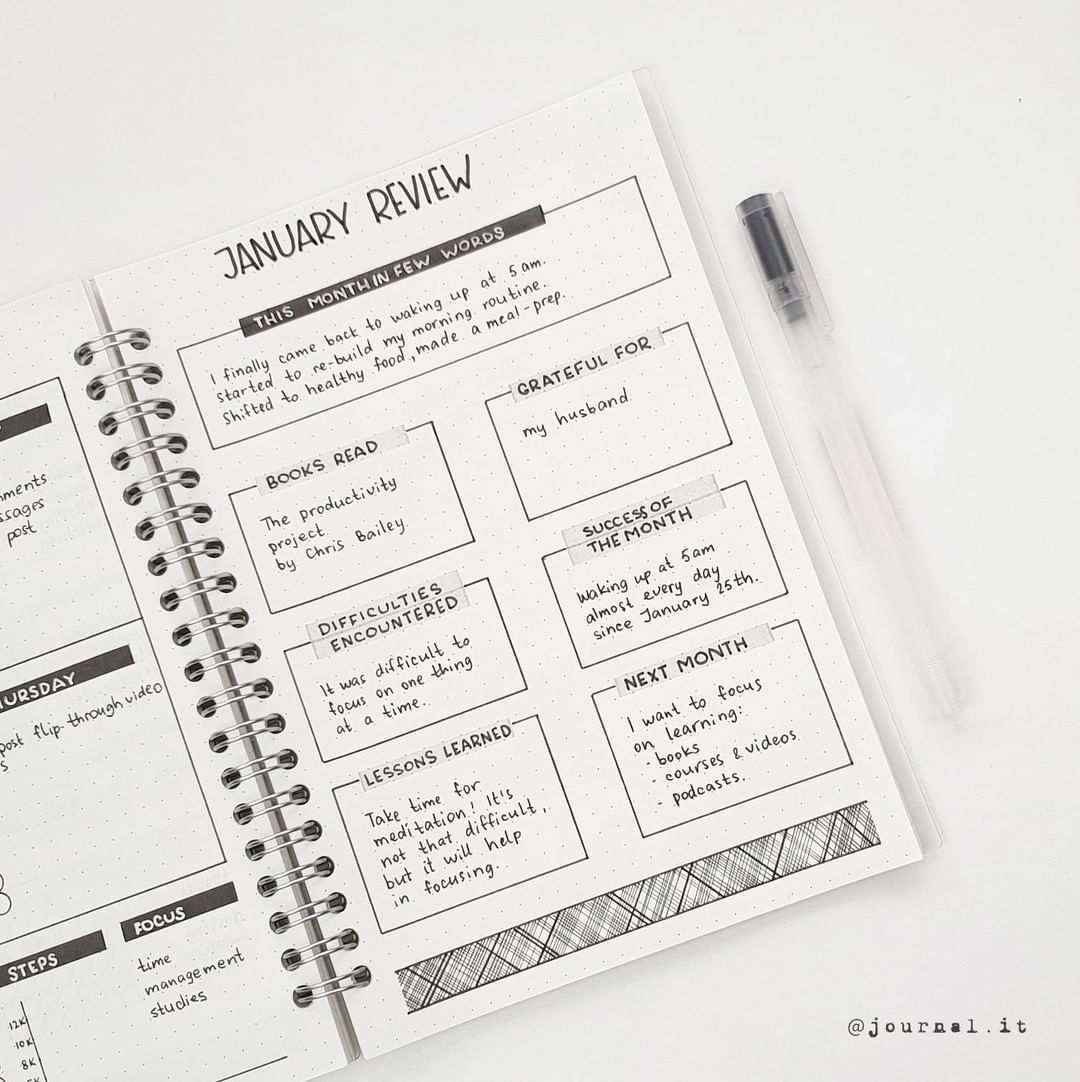 JANUARY REVIEW
THIS MONTH IN FEW WORDS
I finally came back to waking up at 5 am.
Started to re-build my morning routine.
Shifted to healthy food, made a meal-prep.
GRATEFUL FOR
my husband
BOOKS READ
The productivity
project
by Chris Bailey
SUCCESS OF
THE MONTH
Waking up at 5am
almost every day
since January 25th.
DIFFICULTIES
ENCOUNTERED
It was difficult to
focus on one thing
at a time.
NEXT MONTH
I want to focus
on learning:
- books
- courses & videos
- podcasts.
LESSONS LEARNED
Take time for
meditation! It's
not that difficult,
but it will help
in focusing.
post
post flip-through video
FOCUS
time
management
studies
STEPS
12K
10K
8K
@journal.it